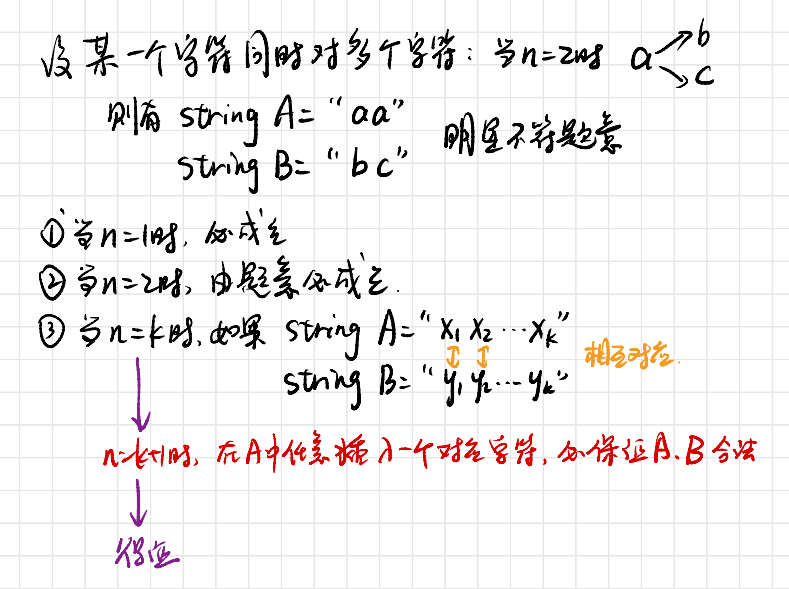 设某一个字符同时对多个字符：当n=2时 a b c
则有 string A="aa"
string B="bc" 明显不符题意
①当n=1时，必成立
②当n=2时，由题意必成立.
③当n=k时，如果 string A="x₁ x₂ … xₖ"
string B="y₁ y₂ … yₖ" 相互对应.
n=k+1时，在A中任意插入一个对应字符，必保证A、B合法
得证